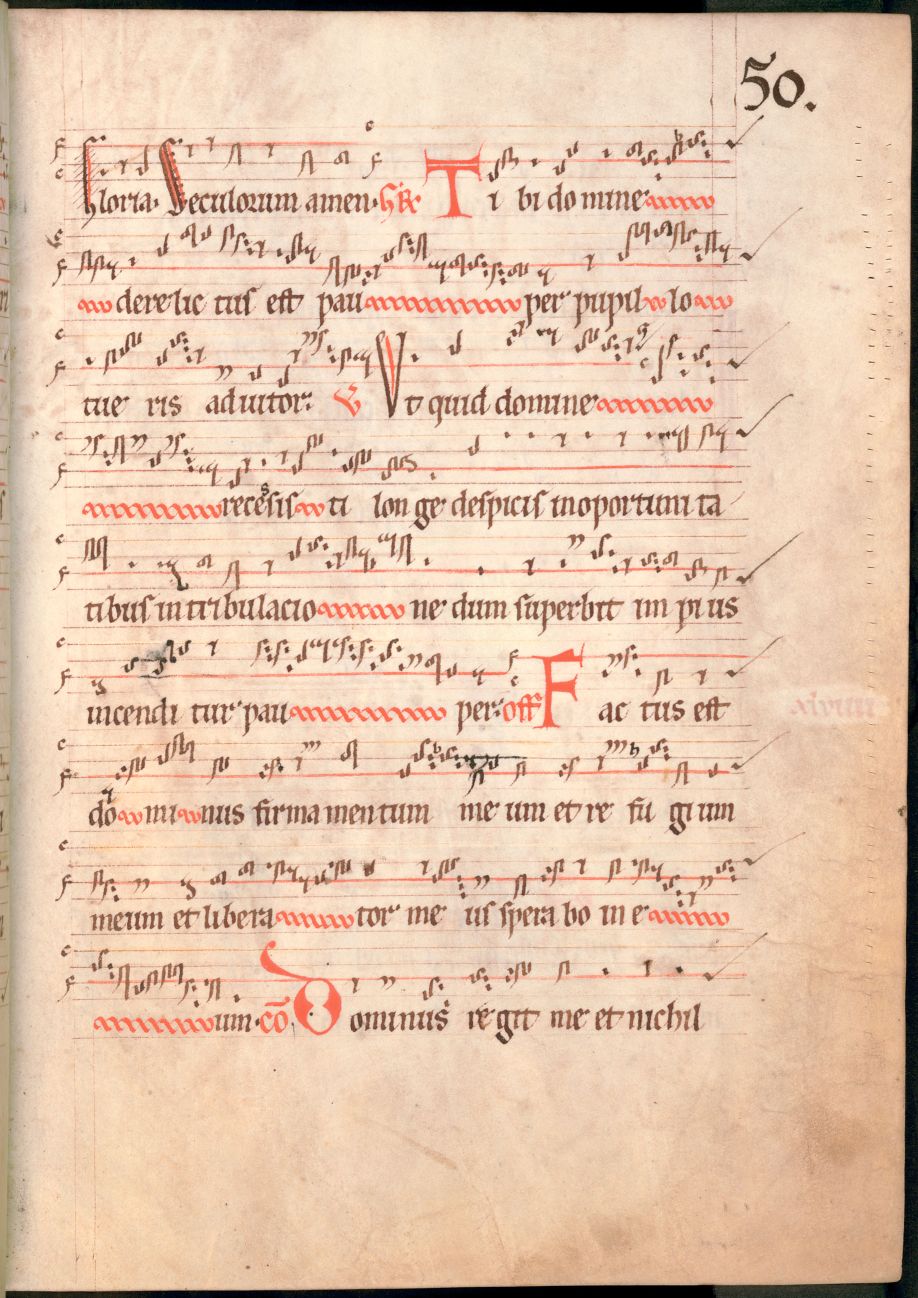 50.
Gloria. Seculorum amen. Gr Ti bi do mine
derelic tus est pau per pupil lo
tue ris adiutor: V Ut quid domine
recessisti lon ge despicis inoportuni ta
tibus in tribulacio ne dum superbit im pius
incendi tur pau per: off Fac tus est
do mi nus firma mentum me um et re fu gi um
meum et libera tor me us spera bo in e
um. co Dominus re git me et nichil